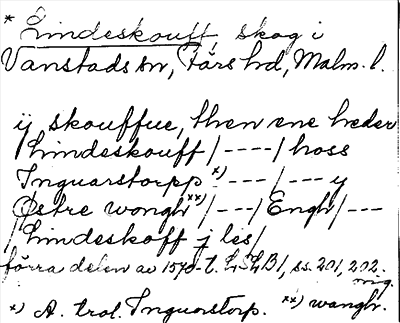 * Lindeskouff, skog i
Vanstads sn, Färs hd, Malm. l.
ij skouffue, then ene heder
Lindeskouff /----/ hoss
Inguarstorpp *) --- / --- y
Østre wongh **) /---/ Engh /---
/ Lindeskoff j les /
förra delen av 1570-t. LSLB /, ss. 201, 202.
mg.
*) A. trol. Inguorstorp. **) wanghr.